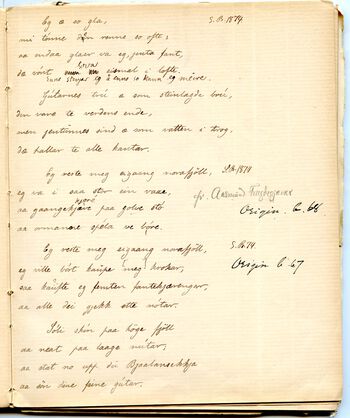 Eg æ so gla, S.B. 1874
mi tonne den renne so ofte;
aa endaa glaer va eg, jenta fant,
dæ vort eismal i lofte.
Gutarnes tru æ som steinlagde brui,
din vara te verdens ende,
men jentinnes sind æ som vatten i trog,
dæ hallar te alle kantar.
Eg reste meg eigaang norafjöll, S.B. 1874
eg va i saa stor ein vaae,
aa gaangekjæve paa golve sto
aa ormanne spela ve bore.
fr. Aasmund
Origin. b. 68
Eg reste meg eigaang norafjöll, S.B. 74.
eg ville bort kaupe meg krokar,
saa kaufte eg femten fantekjæringer,
aa alle dei gjekk ette notar.
Origin b 67
Sole skin paa höge fjöll
aa neat paa laage nutar,
aa stat no upp du Bjaalansekkja
aa ör dine feine gutar.